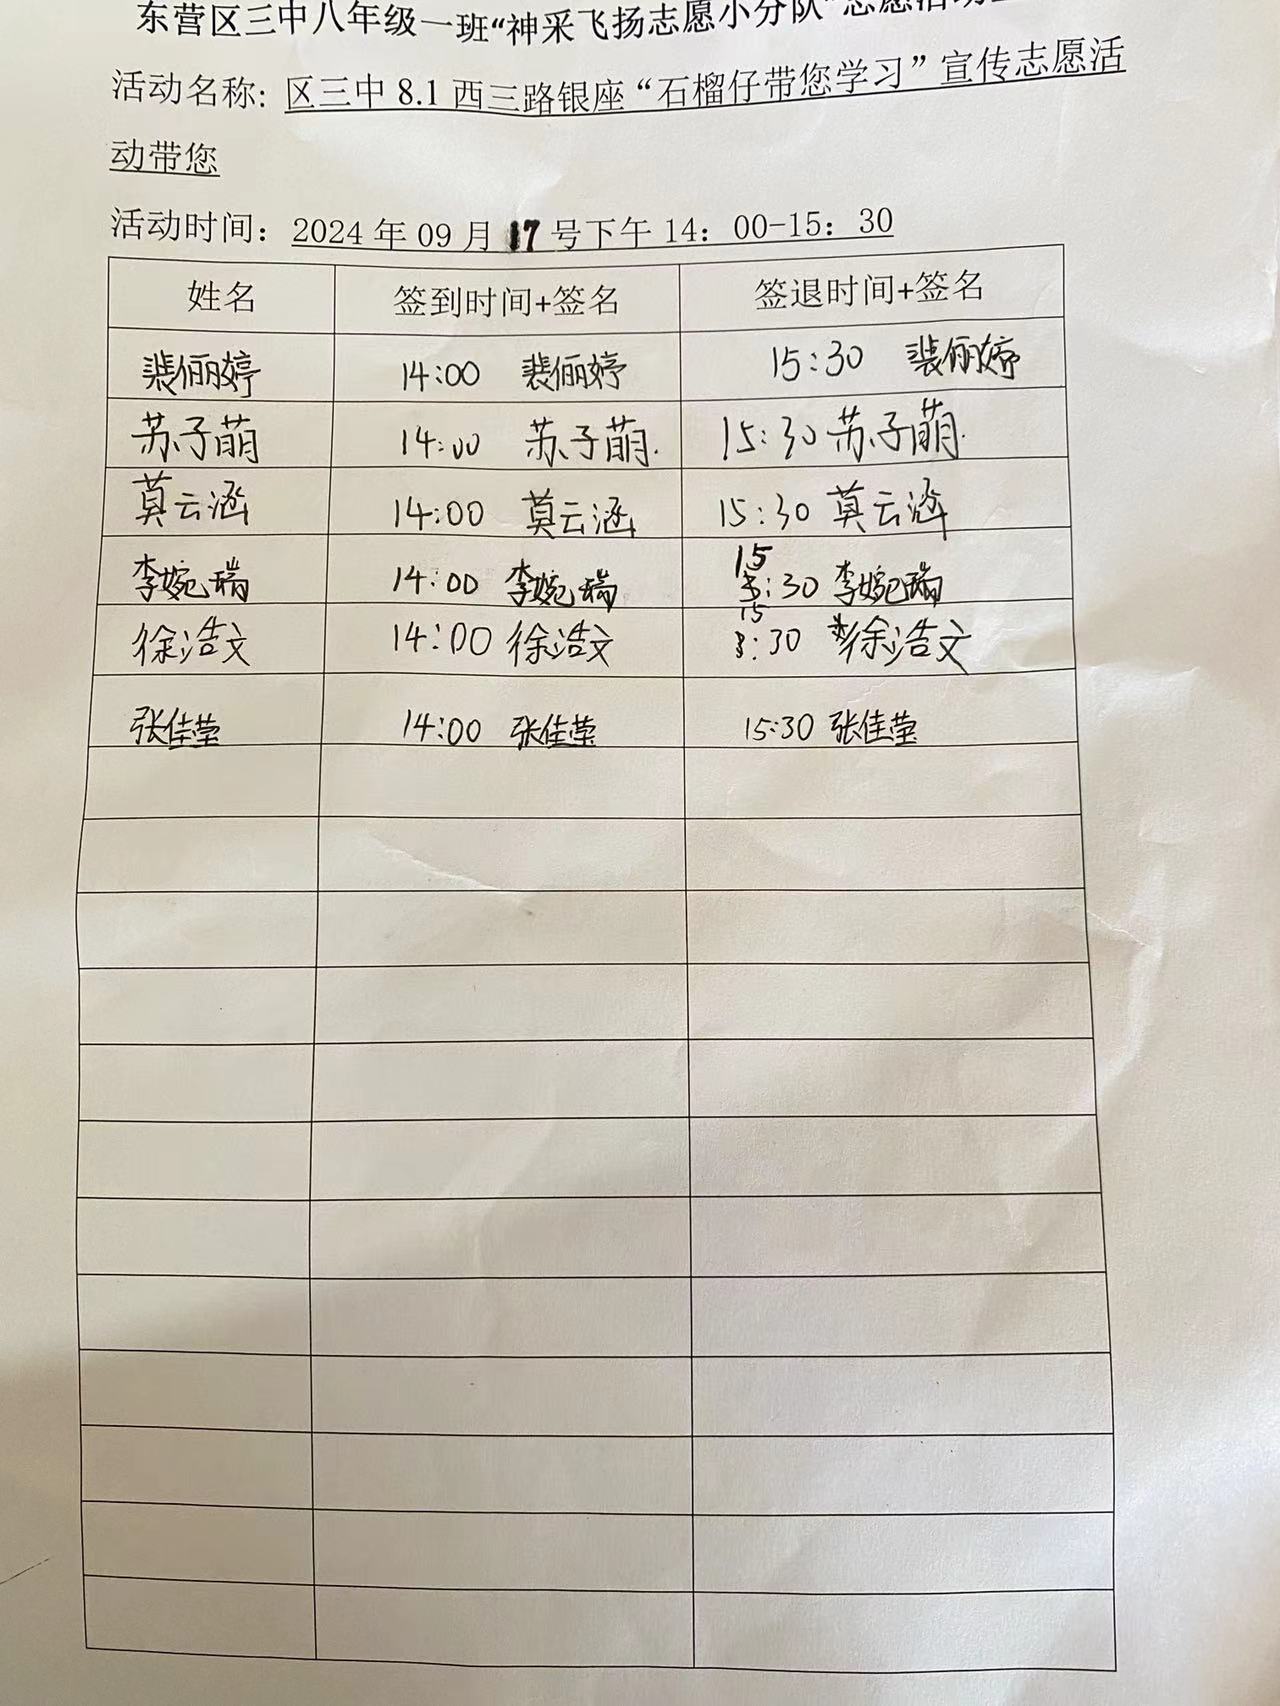 东营区三中八年级一班“神采飞扬志愿小分队”志愿活动
活动名称: 区三中 8.1 西三路银座“石榴仔带您学习”宣传志愿活
动带您
活动时间: 2024 年 09 月 17 号下午 14: 00-15: 30
姓名 签到时间+签名 签退时间+签名
裴俪婷 14:00 裴俪婷 15:30 裴俪婷
苏子萌 14:00 苏子萌. 15:30 苏子萌.
莫云涵 14:00 莫云涵 15:30 莫云涵
李婉瑞 14:00 李婉瑞 15:30 李婉瑞
徐浩文 14:00 徐浩文 15:30 徐浩文
张佳莹 14:00 张佳莹 15:30 张佳莹